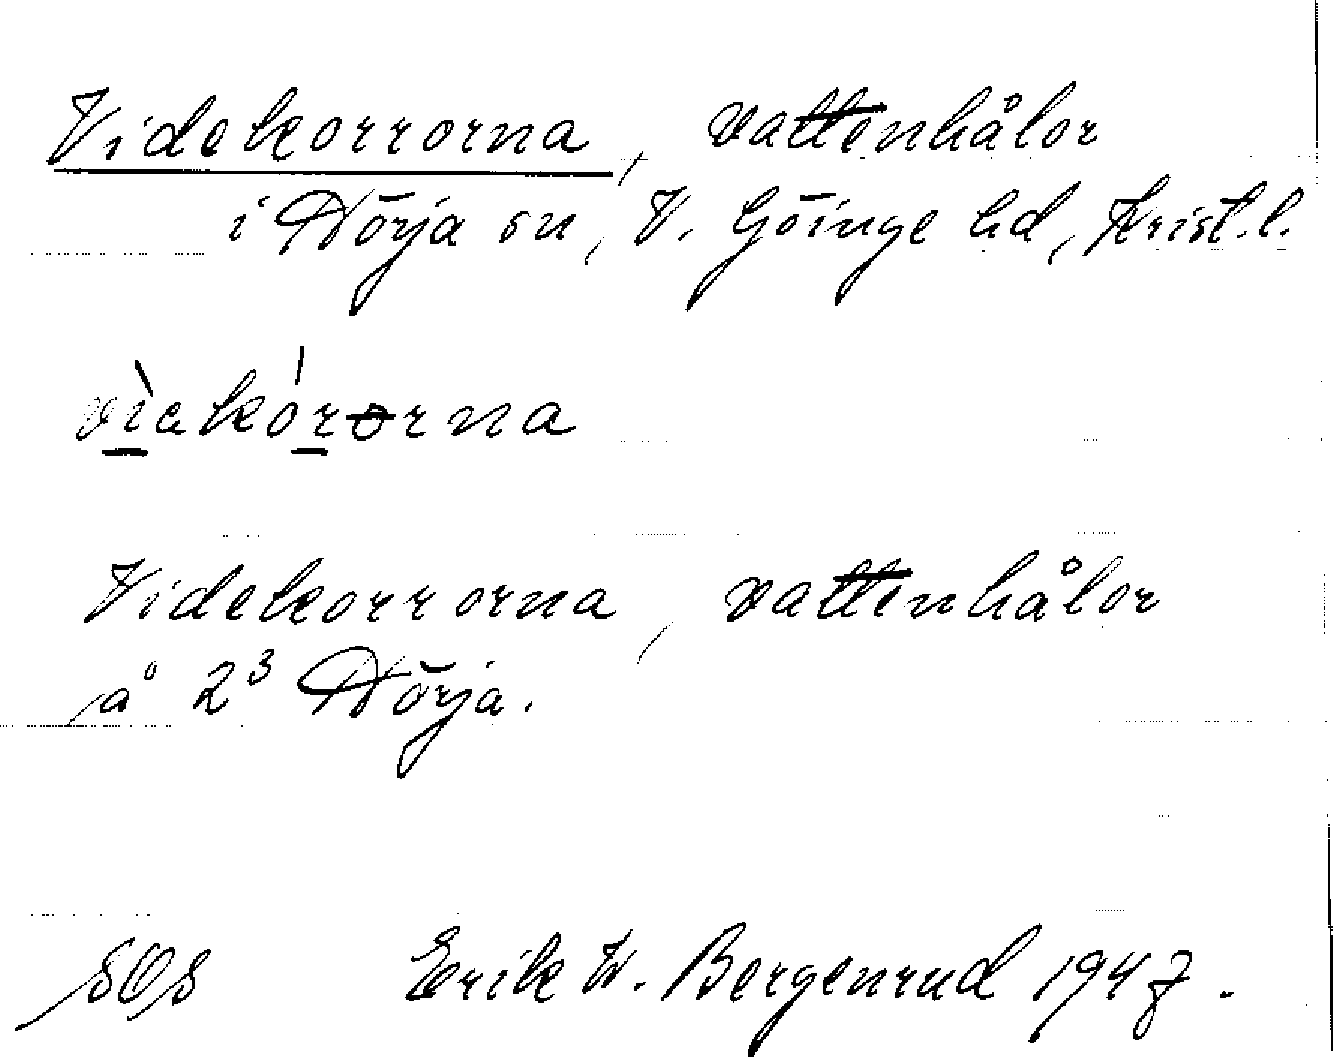 Videkorrorna, vattenhålor
i Nörja sn, V. Göinge hd, Krist.l.
vìekórorna
Videkorrorna, vattenhålor
å 2³ Nörja.
SOS Erik W. Bergenrud 1947.